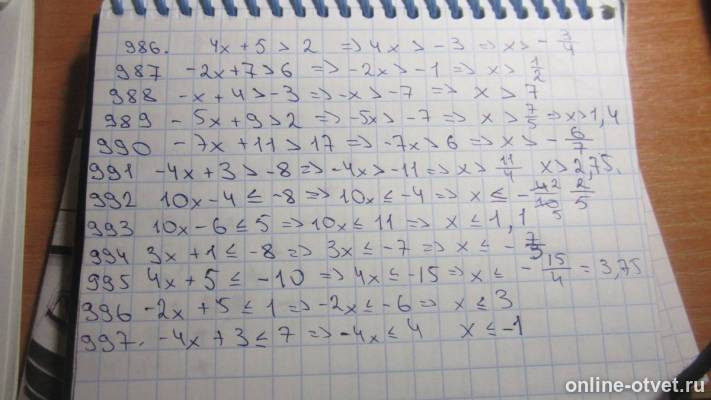 986. 4x + 5 > 2 => 4x > -3 => x > -3/4
987 -2x+7>6 => -2x> -1 => x> 1/2
988 -x + 4 > -3 => -x > -7 => x > 7
989 - 5x + 9 > 2 => -5x > -7 => x > 7/5 => x > 1,4
990 -7x + 11 > 17 => -7x > 6 => x > - 6/7
991 -4x + 3 > -8 => -4x > -11 => x > 11/4 x > 2,75.
992 10x - 4 ≤ -8 => 10x ≤ -4 => x ≤ - 2/5
993 10x - 6 ≤ 5 => 10x ≤ 11 => x ≤ 1,1
994 3x + 1 ≤ -8 => 3x ≤ -7 => x ≤ - 7/3
995 4x + 5 ≤ -10 => 4x ≤ -15 => x ≤ - 15/4 = 3,75
996 -2x + 5 ≤ 1 => -2x ≤ -6 => x ≤ 3
997. -4x + 3 ≤ 7 => -4x ≤ 4 x ≤ -1
online-otvet.ru